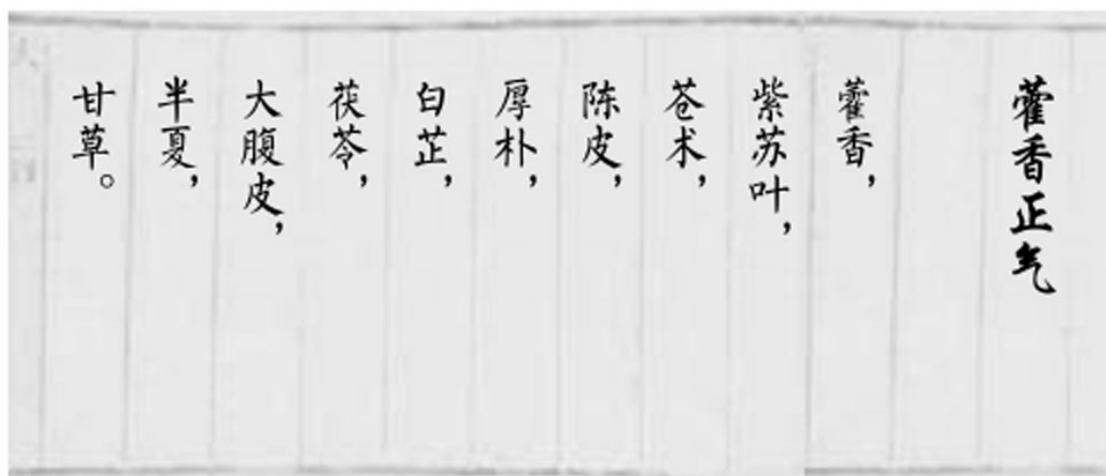 藿香正气
藿香，
紫苏叶，
苍术，
陈皮，
厚朴，
白芷，
茯苓，
大腹皮，
半夏，
甘草。